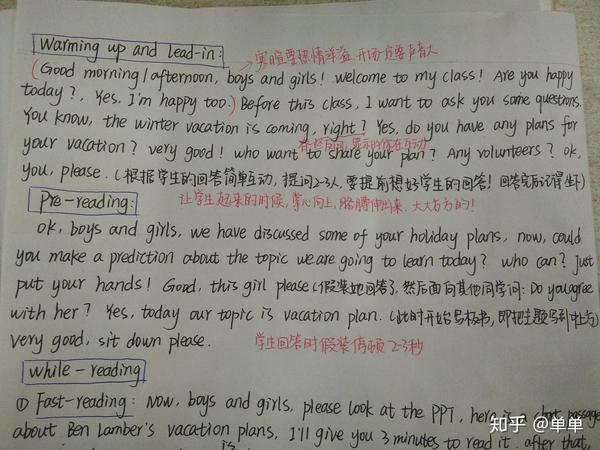 Warming up and lead-in:
寒暄要热情洋溢,开场一定要声音大
(Good morning/afternoon, boys and girls! welcome to my class! Are you happy
today?, Yes, I'm happy too.) Before this class, I want to ask you some questions.
You know, the winter vacation is coming, right? Yes, do you have any plans for
your vacation? very good! who want to share your plan? Any volunteers? ok,
you, please. (根据学生的回答简单互动,提问2-3人,要提前想好学生的回答!回答完后记得坐下)
让学生起来的时候,掌心向上,胳膊伸出来,大大方方的!
Pre-reading:
ok, boys and girls, we have discussed some of your holiday plans, now, could
you make a prediction about the topic we are going to learn today? who can? Just
put your hands! Good, this girl please (假装她回答了,然后面向其他同学问: Do you agree
with her? Yes, today our topic is vacation plan. (此时开始写板书,即把主题写到中上方)
very good, sit down please.
学生回答时假装停顿2-3秒
while-reading
① Fast-reading: Now, boys and girls, please look at the PPT, here is a short passage
about Ben Lamber's vacation plans, I'll give you 3 minutes to read it. after that,
is
知乎 @单单